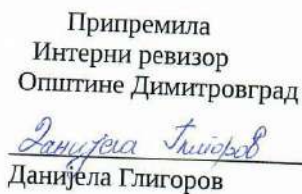 Припремила
Интерни ревизор
Општине Димитровград
Данијела Глигоров
Данијела Глигоров